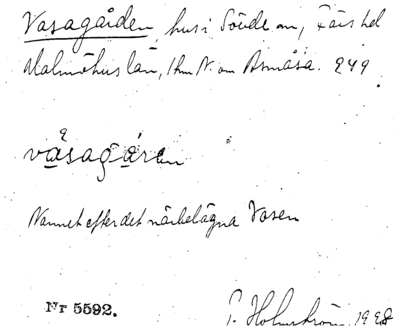 Vasagården, hus i Sövde sn, Färs hd
Malmöhus län, 1 km N. om Åsmåsa. 949
våsagåren
Namnet efter det närbelägna Vasen
Nr 5592.   P. Holmström 1928